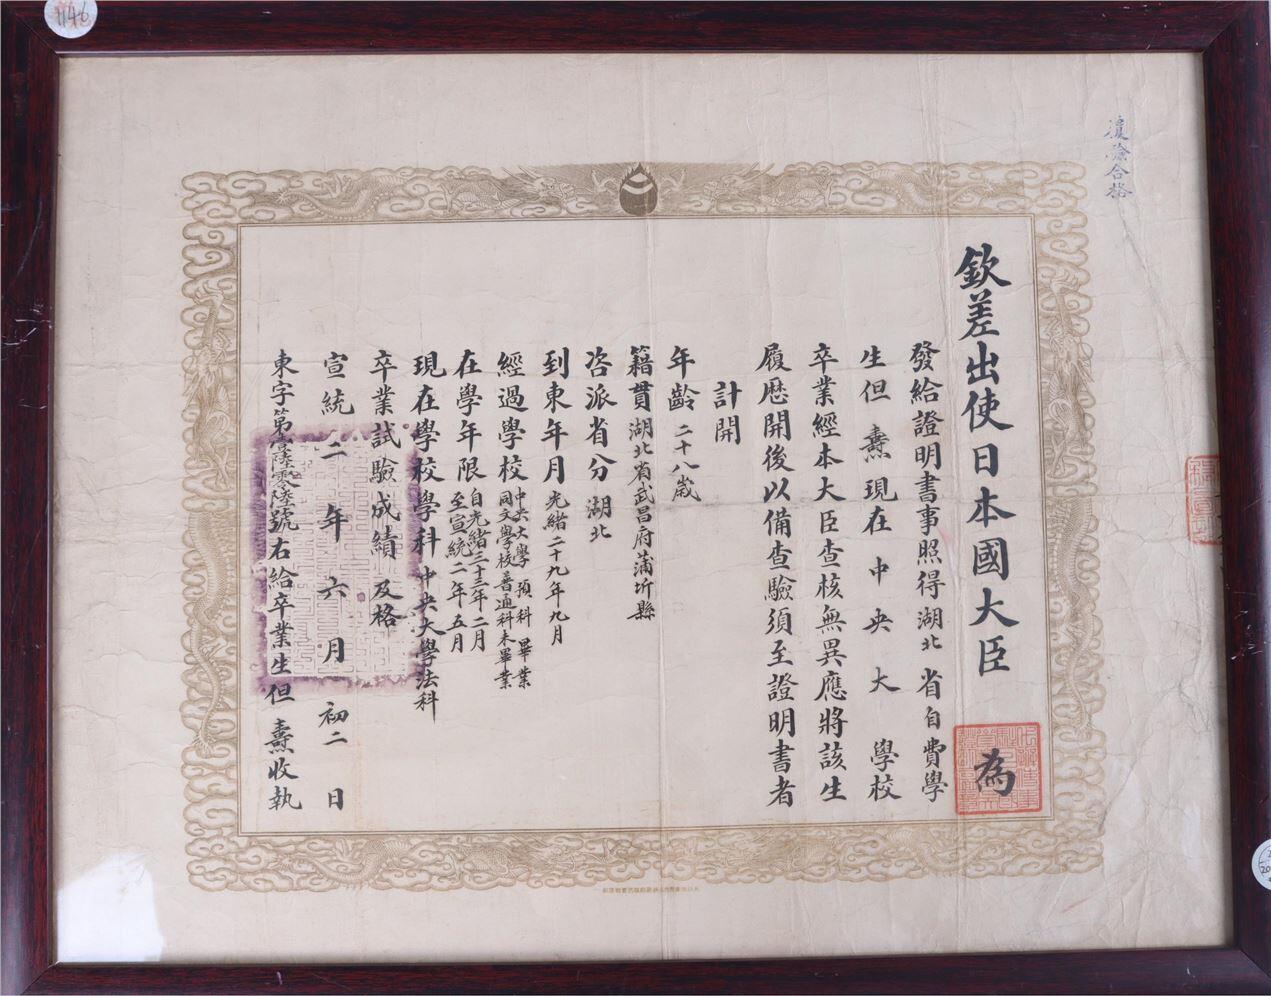 復驗合格
欽差出使日本國大臣 為
發給證明書事照得湖北省自費學
生但燾現在中央大學校
卒業經本大臣查核無異應將該生
履歷開後以備查驗須至證明書者
計開
年齡 二十八歲
籍貫 湖北省武昌府蒲圻縣
咨派省分 湖北
到東年月 光緒二十九年九月
經過學校 中央大學預科畢業
同文學校普通科未畢業
在學年限 自光緒三十三年二月
至宣統二年五月
現在學校學科 中央大學法科
卒業試驗成績 及格
宣統二年六月初二日
東字第壹陸零陸號右給卒業生但燾收執
1146